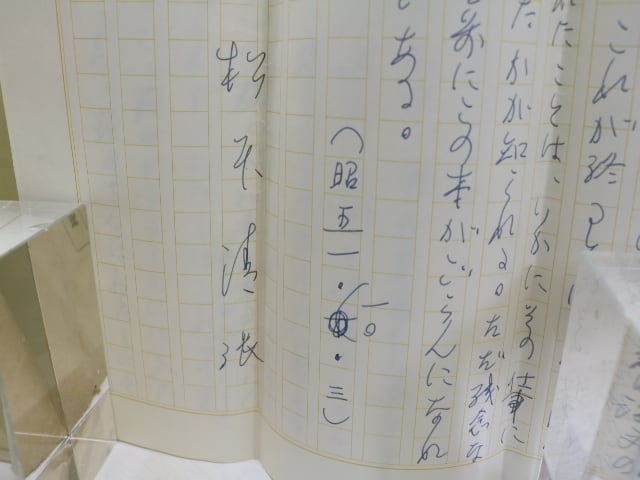 これが終
たことは、いかにその仕事に
たかが知られる。ただ残念な
前にこの本がごらんになれ
ある。
(昭五一・一〇・三)
松本清張